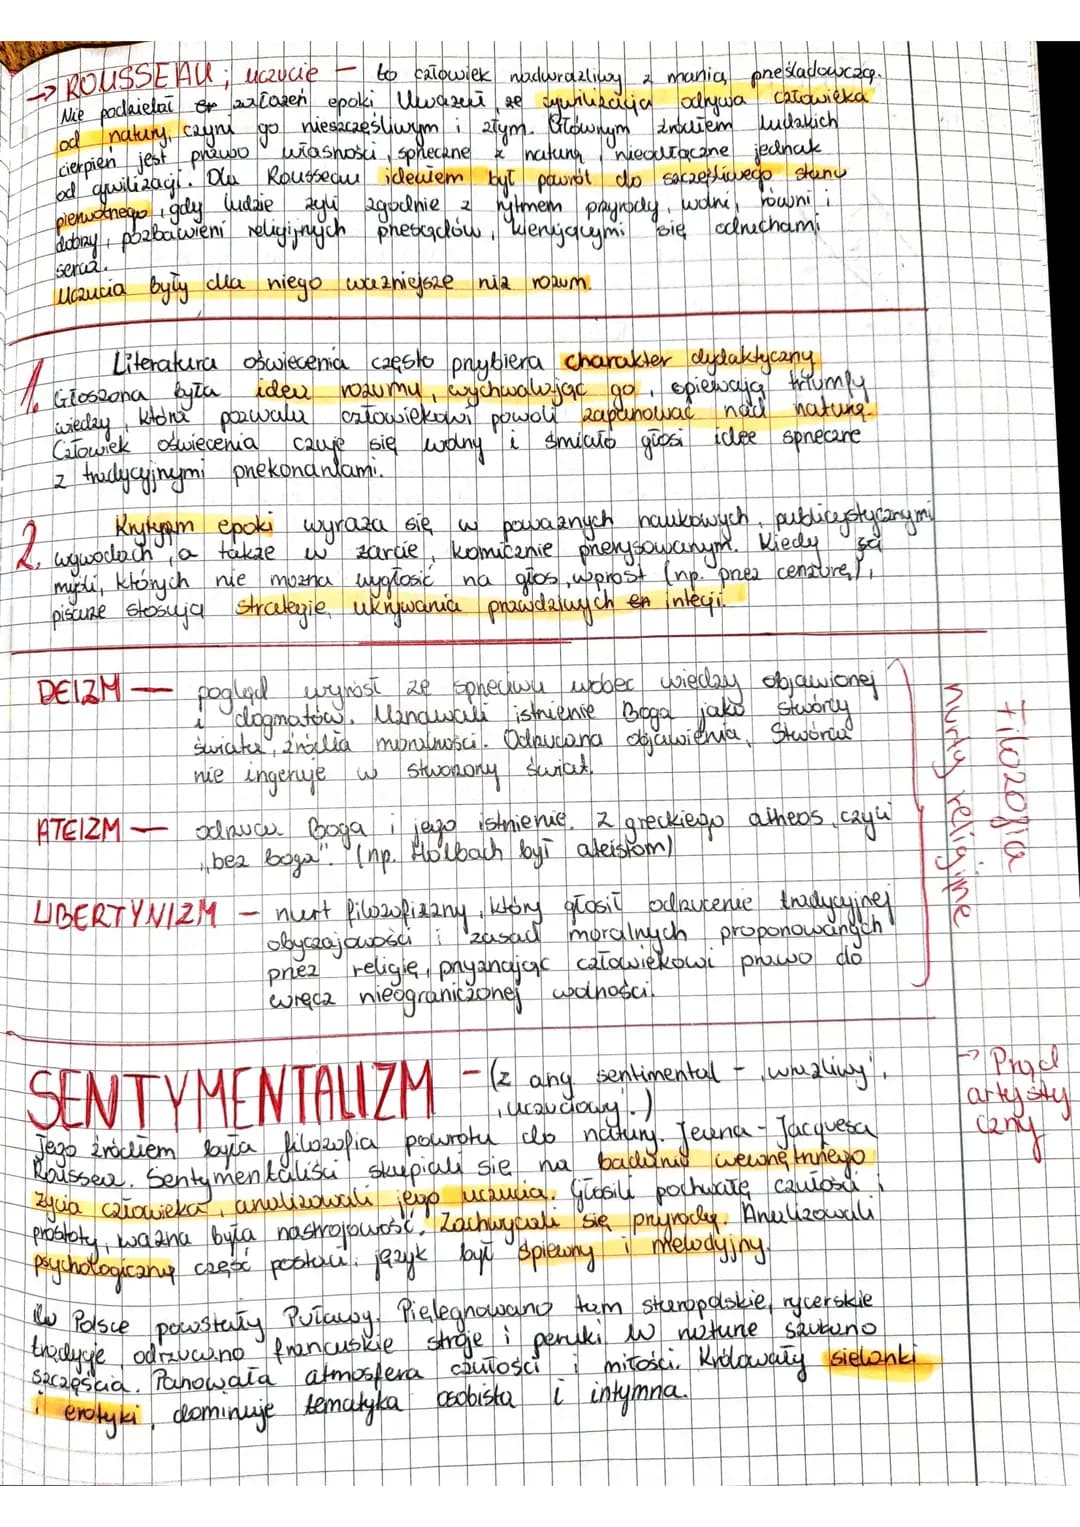 → ROUSSEAU; uczucie – to człowiek nadwrażliwy z manią prześladowczą.
Nie podzielał założeń epoki Uważał, że cywilizacja odrywa człowieka
od natury, czyni go nieszczęśliwym i złym. Głównym źródłem ludzkich
cierpień jest prawo własności, sprzeczne z naturą, nieodłączne jednak
od cywilizacji. Dla Rousseau ideałem był powrót do szczęśliwego stanu
pierwotnego, gdy ludzie żyli zgodnie z rytmem przyrody, wolni, równi i
dobrzy, pozbawieni religijnych przesądów, kierującymi się odruchami
serca.
Uczucia były dla niego ważniejsze niż rozum.
1. Literatura oświecenia często przybiera charakter dydaktyczny
Głoszona była idea rozumu, wychwalając go, opiewają triumfy
wiedzy, która pozwala człowiekowi powoli zapanować nad naturą.
Człowiek oświecenia czuje się wolny i śmiało głosi idee sprzeczne
z tradycyjnymi przekonaniami.
2. Krytycyzm epoki wyraża się w poważnych naukowych, publicystycznymi
wywodach, a także w żarcie, komicznie przerysowanym. Kiedy są
myśli, których nie można wygłosić na głos, wprost (np. przez cenzurę),
pisarze stosują strategie ukrywania prawdziwych intecji.
DEIZM — pogląd wyrósł ze sprzeciwu wobec wiedzy objawionej
i dogmatów. Uznawali istnienie Boga jako stwórcy
świata, źródła moralności. Odrzucona objawienia, Stwórca
nie ingeruje w stworzony świat.
ATEIZM — odrzuca Boga i jego istnienie. Z greckiego atheos, czyli
„bez boga". (np. Holbach był ateistom)
LIBERTYNIZM – nurt filozofizny, który głosił odrzucenie tradycyjnej
obyczajowości i zasad moralnych proponowanych
przez religię, przyznając człowiekowi prawo do
wręcz nieograniczonej wolności.
Filozofia
nurty religijne
SENTYMENTALIZM – (z ang. sentimental – ,wrażliwy',
,uczuciowy'.)
→ Prąd
artysty
czny
Jego źródłem była filozofia powrotu do natury. Jeana-Jacquesa
Roussea. Sentymentaliści skupiali się na badaniu wewnętrznego
życia człowieka, analizowali jego uczucia. Głosili pochwałę czułości i
prostoty, ważna była nastrojowość. Zachwycali się przyrodą. Analizowali
psychologiczną część postaci. język był śpiewny i melodyjny.
W Polsce powstały Puławy. Pielęgnowano tam staropolskie, rycerskie
tradycje, odrzucano francuskie stroje i peruki. W naturze szukano
szczęścia. Panowała atmosfera czułości i miłości. Królowały sielanki
i erotyki, dominuje tematyka osobista i intymna.